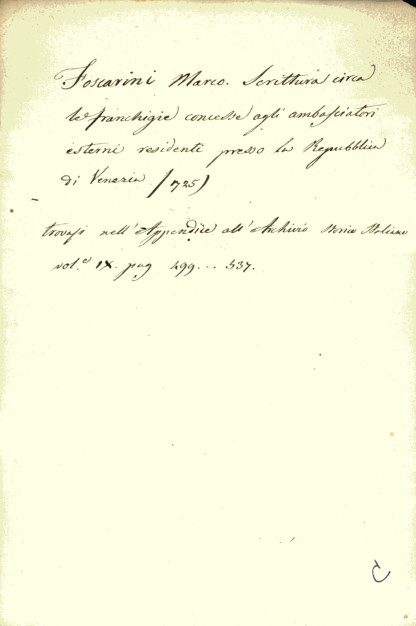 Foscarini Marco. Scrittura circa
le franchigie concesse agli ambasciatori
esterni residenti presso la Repubblica
di Venezia (1725)
trovasi nell'Appendice all'Archivio Storico Italiano
vol.e IX. pag 499... 537.
C